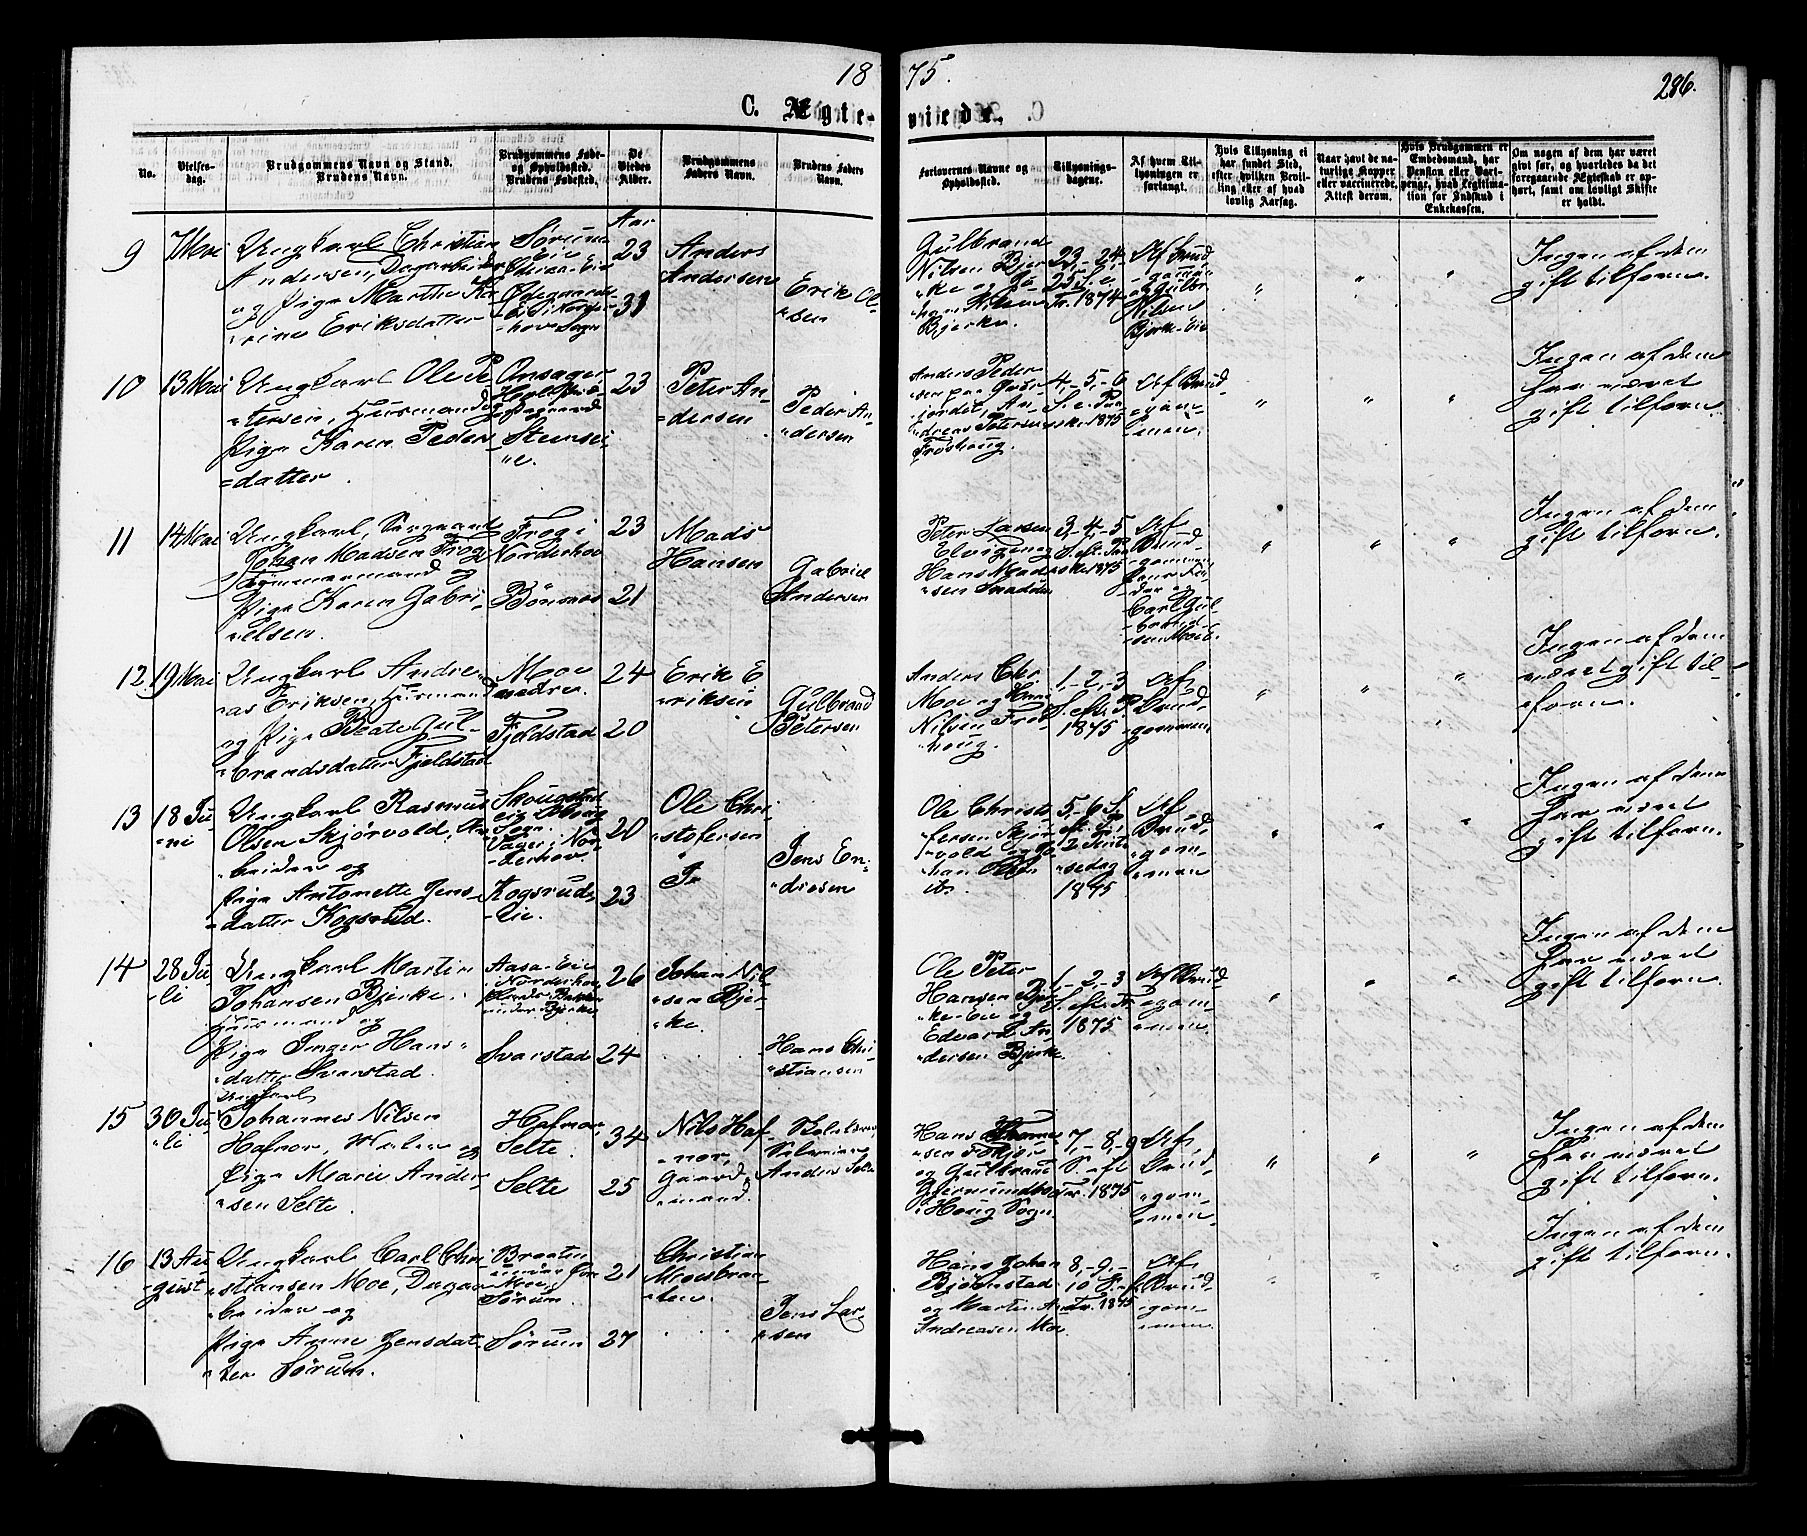 18 75.
286.
C. Ægte-viede.
No.
Vielses-
dag.
Brudgommens Navn og Stand.
Brudens Navn.
Brudgommens Føde-
og Opholdssted.
Brudens Fødested.
De
Viedes
Alder.
Brudgommens
Faders Navn.
Brudens Faders
Navn.
Forlovernes Navne og
Opholdssted.
Tillysnings-
dagene.
Af hvem Til-
lysningen er
forlangt.
Hvis Tillysning ei
har fundet Sted,
efter hvilken Bevil-
ling eller af hvad
lovlig Aarsag.
Naar havt de na-
turlige Kopper
eller vaccinerede,
Attest derom.
Hvis Brudgommen er
Embedsmand, har
Pension eller Vart-
penge, hvad Legitima-
tion for Indskud i
Enkekassen.
Om nogen af dem har været
gift før, og hvorledes da det
foregaaende Ægteskab er op-
hørt, samt om lovligt Skifte
er holdt.
Aar
9
7 Mai
Ungkarl Christian
Andersen, Dagarbeider
og Pige Marthe Ka-
"rine Eriksdatter
Sørum
Eie
Ødegaards-
hov Sogn
23
31
Anders
Andersen
Erik Ol-
"sen
Gulbrand
Nilsen Bjer
"ke og Jo-
han Nilsen
Bjerke.
23,- 24,-
25 S. e.
Tr. 1874
Af Brud-
gommen
og Gulbr.
Nilsen
Bjerke-Eie
" " "
Ingen af dem
gift tilforn.
10
13 Mai
Ungkarl Ole Pe
=tersen, Husmand
Pige Karen Peders
=datter
Onsager
Steensei-
"e.
23
Peter An-
=dersen
Peder An-
"dersen
Anders Peder
sen paa
jordet, An-
dreas Petersen
Frøshoug.
4,- 5,- 6
S. e. Paa
ske. 1875
Af Brud-
=gom-
=men.
" " "
Ingen af dem
har været
gift tilforn.
11
14 Mai
Ungkarl, Sergeant
Johan Madsen Frog
Tømmermand og
Pige Karen Gabri-
"elsen.
Frog i
Norderhov
Bønsnæs
23
21
Mads
Hansen
Gabriel
Andersen
Peter Larsen
Elvigen og
Hans Mad-
"sen Smedden
3,- 4,- 5
S. eft. Paa
ske. 1875
Af
Brud-
gommens
Fa-
der og
Carl Gul-
brand-
sen Moe
" " "
Ingen af dem
gift tilforn.
12
19 Mai
Ungkarl Andre-
"as Eriksen, Husmand
og Pige Beate Gul-
"brandsdatter Fjeldstad
Moe
nedre.
Fjeldstad
24
20
Erik E
"riksen
Gulbrand
Petersen
Anders Chr.
Moe og Hans
Nilsen Frøs
"houg.
1,- 2,- 3
S. eft. P.
1875
Af
Brud-
gommen
" " "
Ingen af dem
været gift til-
forn.
13
18 Ju-
"ni
Ungkarl Rasmus
Olsen Skjørvold, Ar
"beider og
Pige Antonette Jens-
"datter Kogsrud.
Skougstad
eie
Sogn.
Vager i Nor-
derhov
Kogsrud-
"Eie.
20
23
Ole Chri
"stofersen
Jens En-
"dresen
Ole Christo
fersen Skjør
"vold og Jo
"han Olsen
ib.
5,- 6 S.
2 Pint-
sedag
1875
Af
Brud-
"gom-
"men
" " "
Ingen af dem
har været
gift tilforn.
14
28 Ju-
"li
Ungkarl Martin
Johansen Bjerke,
Husmand og
Pige Inger Hans-
"datter Svarstad.
Aasa-Eie
Norderhov
under Bjerke
Svarstad
26
24
Johan Nil
"sen Bjer-
"ke.
Hans Chri-
"stiansen
Ole Peter
Hansen Bjer
"ke-Eie og
Edvard An
"dersen Bjerke.
1,- 2,- 3
S. eft. Tr.
1875
Af Brud
"gom-
"men.
" " "
Ingen af dem
har været
gift tilforn.
15
30 Ju-
"li
Ungkarl
Johannes Nilsen
Hafnor, Maler og
Pige Marie Ander-
"sen Selte.
Hafnor,
Selte.
Selte
34
25
Nils Haf-
"nor,
Gaard-
"mand.
Anders Selte
Hans
"sen
og Gulbrand
Gjermundbo
i Houg Sogn.
7,- 8,- 9
S. eft
Tr. 1875
Af
Brud-
"gom-
"men.
" " "
Ingen af dem
har været
gift tilforn.
16
13 Au-
"gust
Ungkarl Carl Chri-
"stiansen Moe, Dagar-
"beider og
Pige Anne Jensdat-
"ter Sørum.
Braaten
under
Moe,
Sørum.
Sørum
21
27
Christian
Moesbraa-
"ten.
Jens Lar-
"sen
Hans Johan
Bjørnstad
og Martin
Andreasen Moe.
8,- 9,-
10 S. eft
Tr. 1875
Af
Brud-
gom-
"men.
" " "
Ingen af dem
gift tilforn.